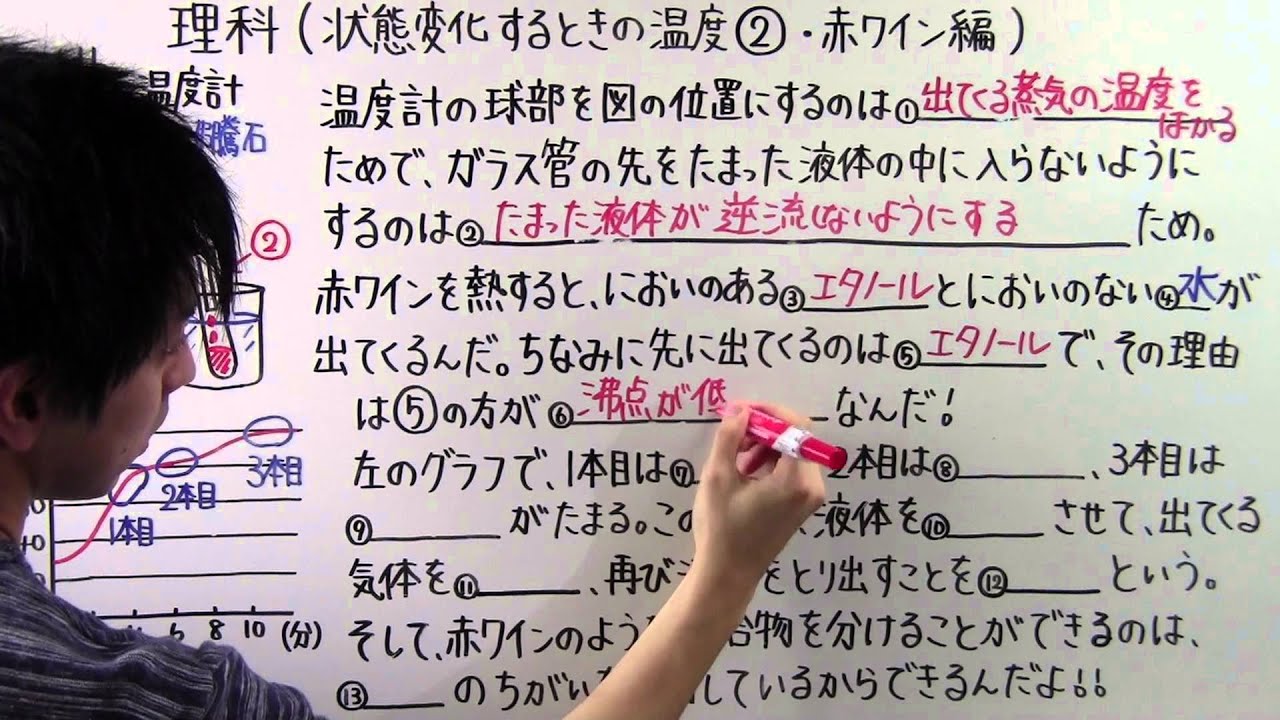 理科(状態変化するときの温度②・赤ワイン編)
温度計
騰石
②
1本目
2本目
3本目
6 8 10 (分)
温度計の球部を図の位置にするのは①出てくる蒸気の温度を
はかる
ためで、ガラス管の先をたまった液体の中に入らないように
するのは②たまった液体が逆流しないようにするため。
赤ワインを熱すると、においのある③エタノールとにおいのない④水が
出てくるんだ。ちなみに先に出てくるのは⑤エタノールで、その理由
は⑤の方が⑥沸点が低なんだ!
左のグラフで、1本目は⑦ 2本目は⑧ 、3本目は
⑨ がたまる。この 液体を⑩ させて、出てくる
気体を⑪ 、再び をとり出すことを⑫ という。
そして、赤ワインのよう 合物を分けることができるのは、
⑬ のちがい しているからできるんだよ!!